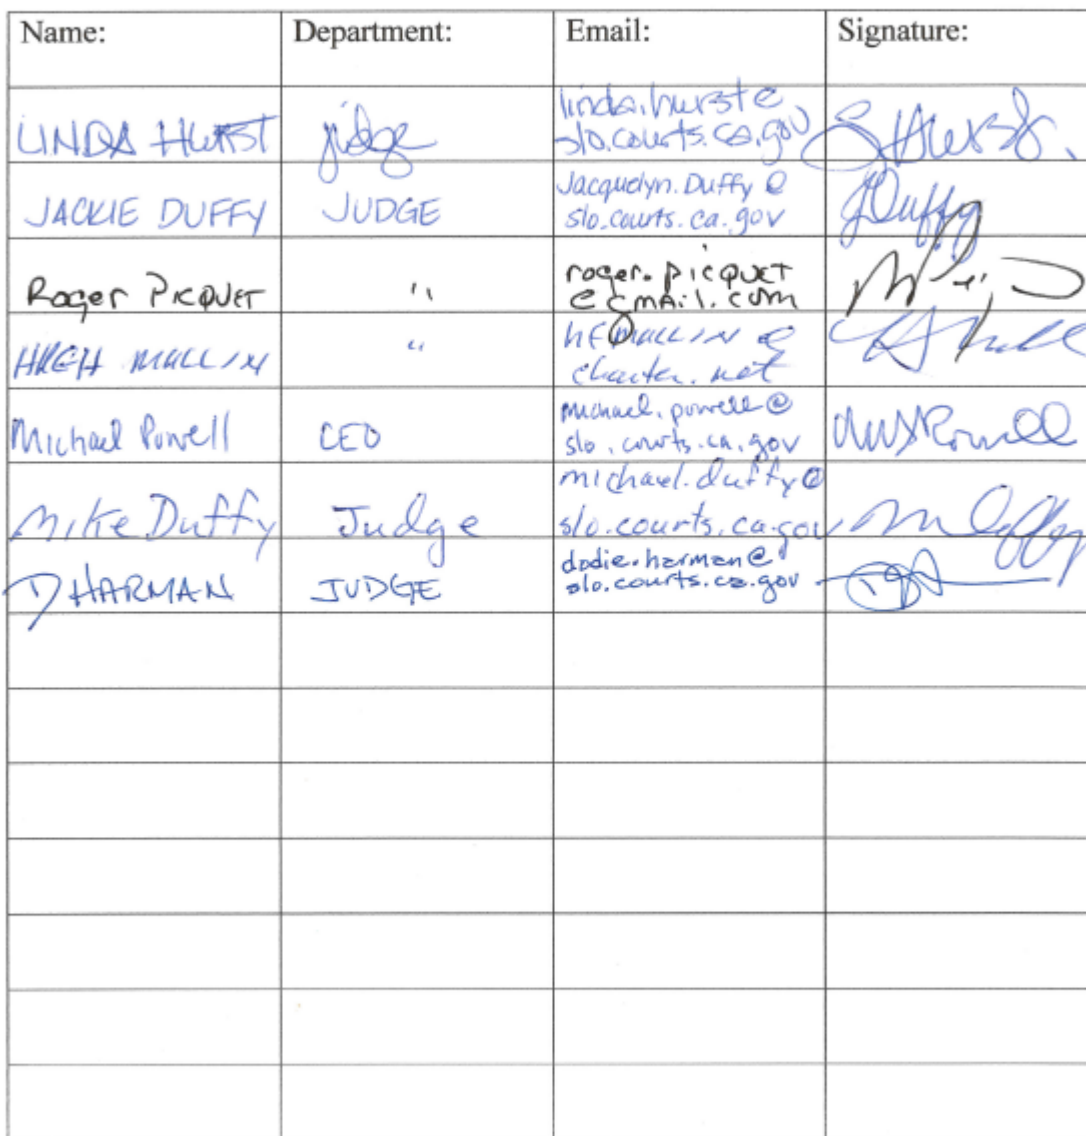 Name: Department: Email: Signature:
LINDA HURST judge linda.hurst@
slo.courts.ca.gov
JACKIE DUFFY JUDGE Jacquelyn.Duffy@
slo.courts.ca.gov
Roger PICQUET " roger.picquet
@gmail.com
HUGH MULLIN " hfmullin@
charter.net
Michael Powell CEO michael.powell@
slo.courts.ca.gov
Mike Duffy Judge michael.duffy@
slo.courts.ca.gov
D HARMAN JUDGE dodie.harman@
slo.courts.ca.gov